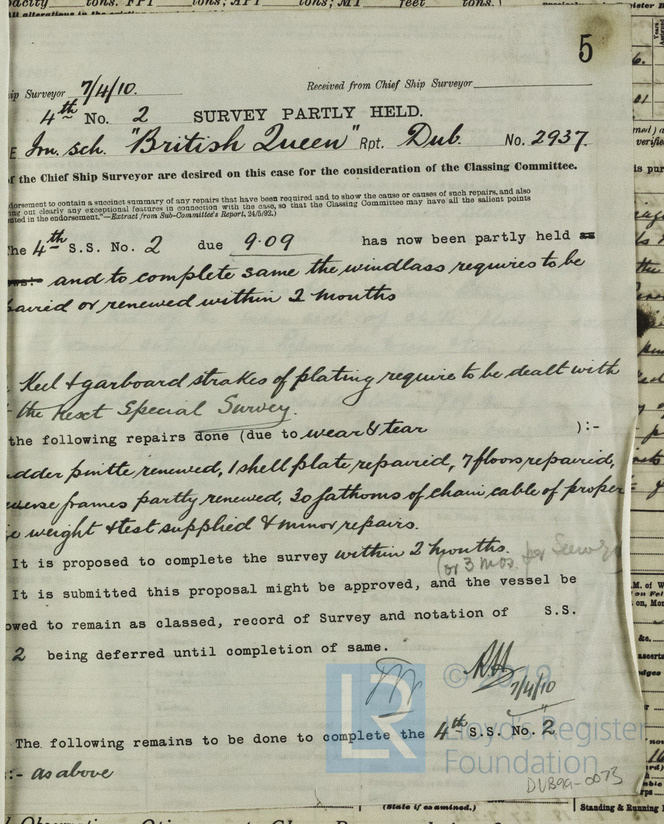 pacity tons. FPT tons; APT tons; MT feet tons.
5
ip Surveyor 7/4/10. Received from Chief Ship Surveyor
4th No. 2 SURVEY PARTLY HELD.
E Irn. sch. "British Queen" Rpt. Dub. No. 2937
f the Chief Ship Surveyor are desired on this case for the consideration of the Classing Committee.
dorsement to contain a succinct summary of any repairs that have been required and to show the cause or causes of such repairs, and also
ng out clearly any exceptional features in connection with the case, so that the Classing Committee may have all the salient points
nted in the endorsement."—Extract from Sub-Committee's Report, 24/5/92.)
The 4th S.S. No. 2 due 9.09 has now been partly held as
and to complete same the windlass requires to be
paired or renewed within 2 months
Keel & garboard strakes of plating require to be dealt with
the next Special Survey.
the following repairs done (due to wear & tear ):-
udder pintle renewed, 1 shell plate repaired, 7 floors repaired,
everse frames partly renewed, 30 fathoms of chain cable of proper
e weight & test supplied & minor repairs.
It is proposed to complete the survey within 2 months.
(or 3 mos. for
It is submitted this proposal might be approved, and the vessel be
owed to remain as classed, record of Survey and notation of S.S.
2 being deferred until completion of same.
7/4/10
The following remains to be done to complete the 4th S.S. No. 2
:- as above
LR
Lloyd's Register
Foundation
DUB99-0073
(State if examined.)
Standing & Running